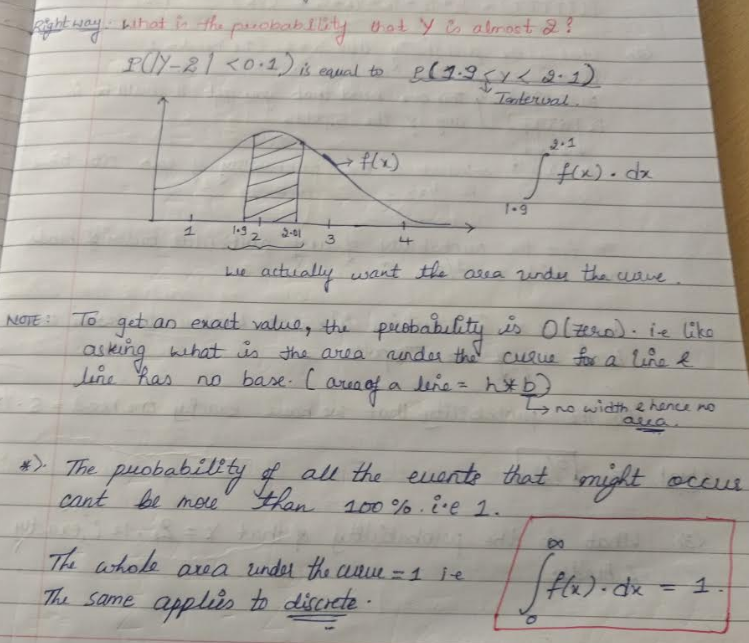 Right way. What is the probability that Y is almost 2?
P(|Y-2| <0.1) is equal to P(1.9 < Y < 2.1)
Interval.
→ f(x)
2.1
∫ f(x). dx
1.9
1 1.9 2 2.01 3 4
We actually want the area under the curve.
NOTE: To get an exact value, the probability is 0(zero). i.e like
asking what is the area under the curve for a line &
line has no base. (area of a line = h*b)
→ no width & hence no
area.
*). The probability of all the events that might occur
cant be more than 100%. i.e 1.
The whole area under the curve = 1 i.e
The same applies to discrete.
∞
∫ f(x). dx = 1.
0